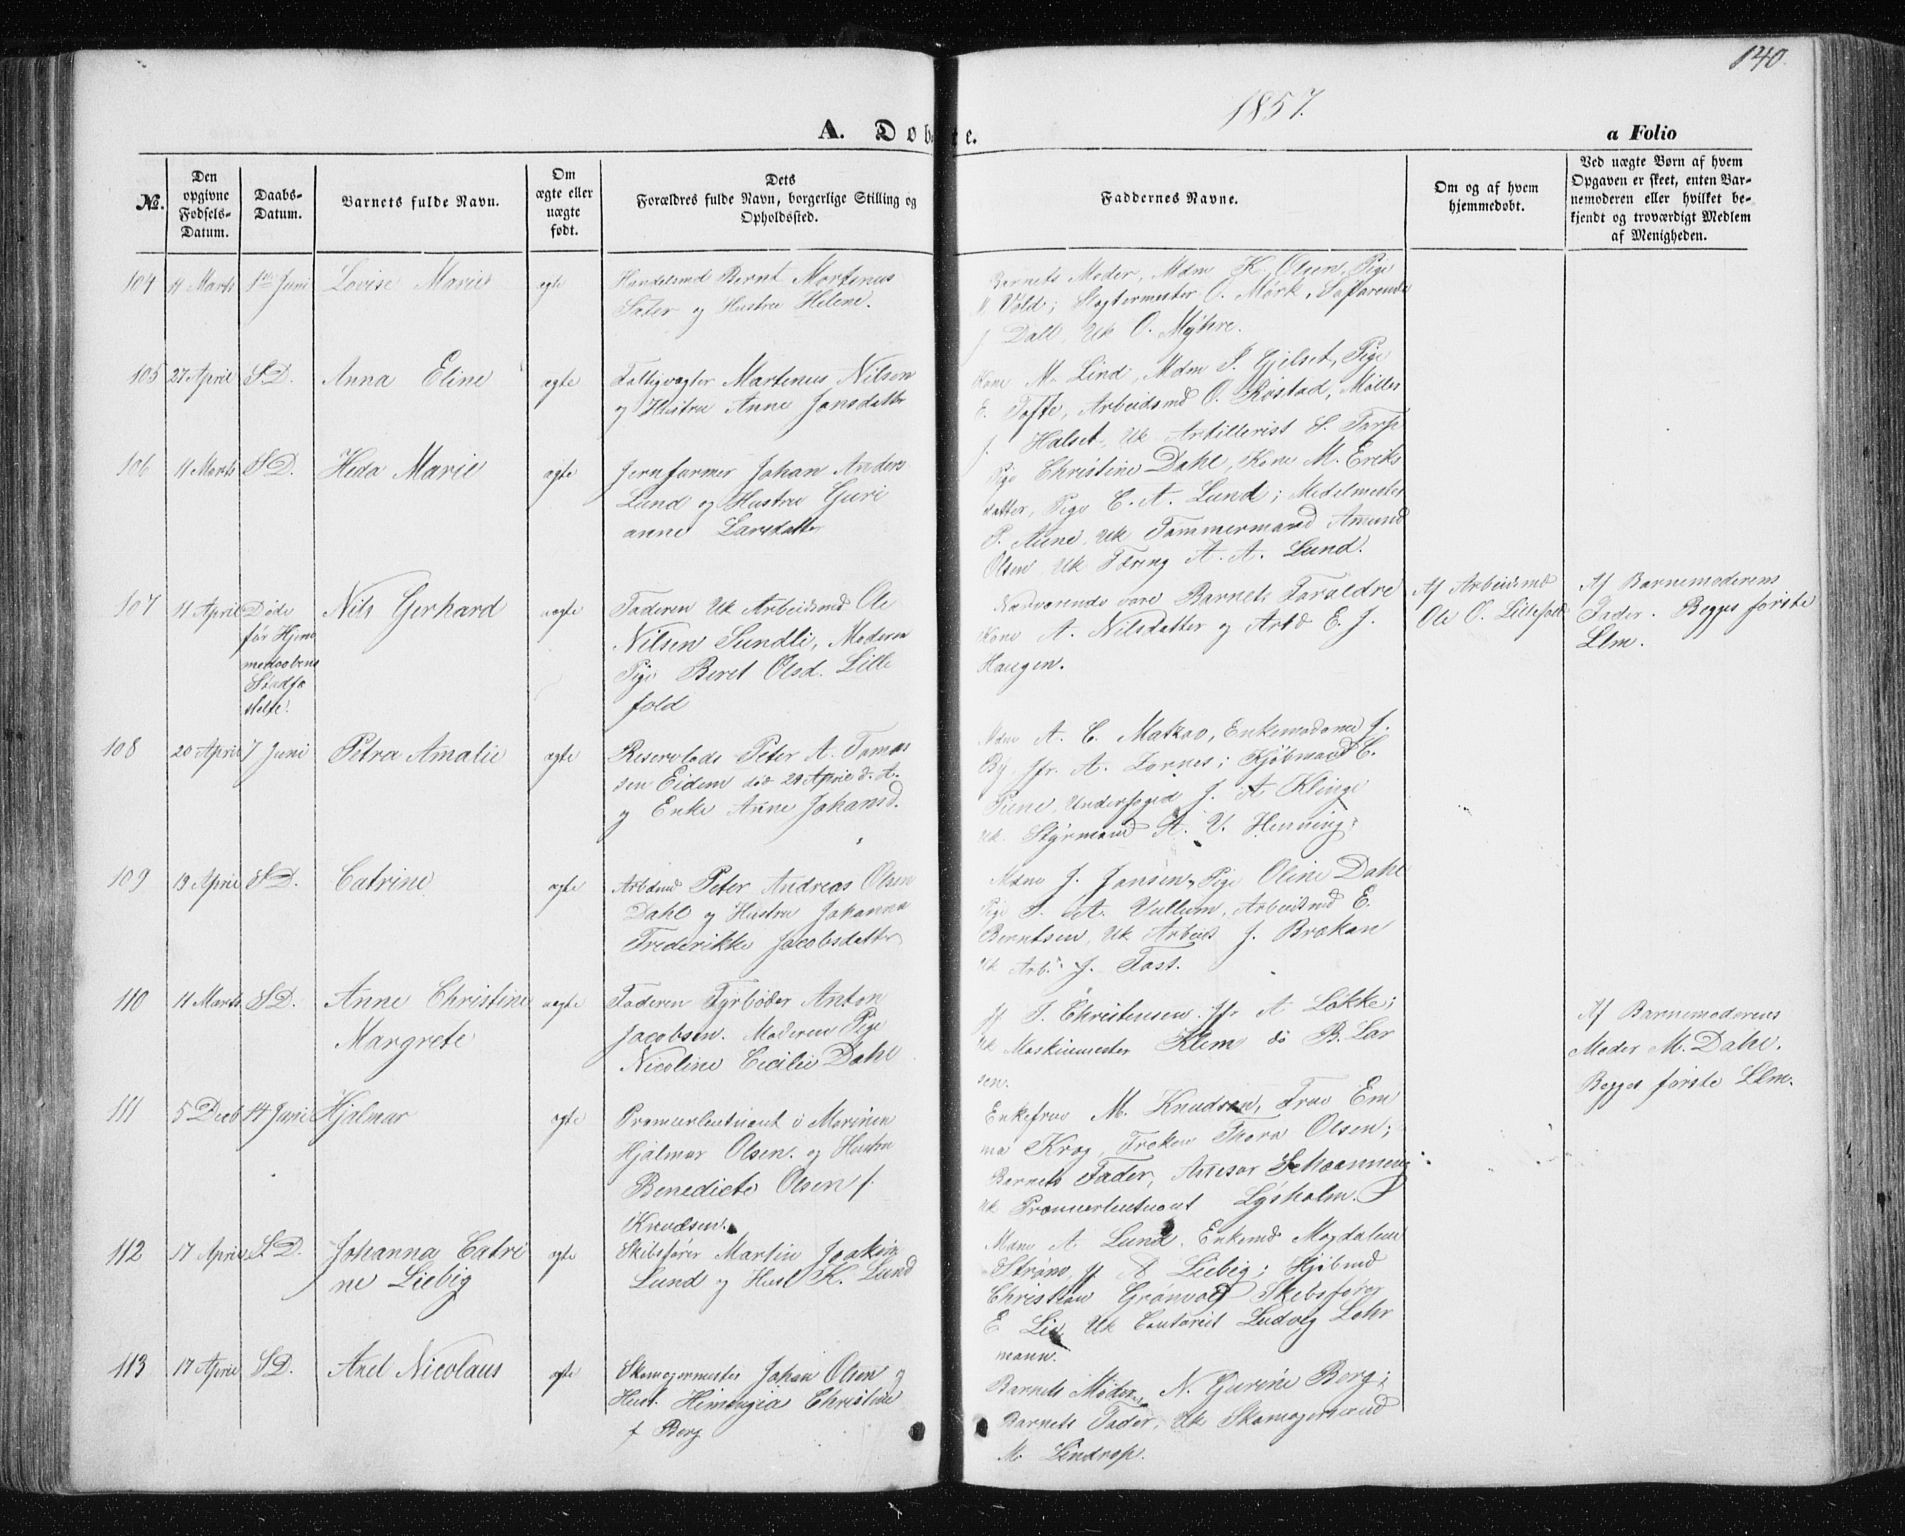 140.
1857.
A. Døbte.
a Folio
No.
Den opgivne Fødsels-Datum.
Daabs-Datum.
Barnets fulde Navn.
Om ægte eller uægte født.
Dets Forældres fulde Navn, borgerlige Stilling og Opholdssted.
Faddernes Navne.
Om og af hvem hjemmedøbt.
Ved uægte Børn af hvem Opgaven er skeet, enten Barnemoderen eller hvilket bekjendt og troværdigt Medlem af Menigheden.
104 11 Marts 1ste Juni Lovise Marie ægte
Handelsmd Bernt Martinus
Sater og Hustru Helene.
Barnets Moder, Mdm K. Olsen, Pige
Vold; Slagtermester O. Mørk,
J Dall, Uk O. Myhre.
105 27 April S.D. Anna Eline ægte
Fattigvogter Martinus Nilsen
og Hustru Anne Jonsdatter
Kone M. Lind, Mdm S. Gjelset, Pige
E. Tofte, Arbeidsmd O. Rostad, Møller
J. Halset, Uk Artillerist S. Torp
106 11 Marts S.D. Heda Marie ægte
Jernformer Johan Anders
Lund og Hustru Guri
anne Larsdatter
Pige Christine Dahl, Kone M. Eriks
datter, Pige C. A. Lund; Medelmester
P. Aune, Uk Tømmermand Amund
Olsen Uk Dreng A. A. Lund.
107 11 April Døde
før Hjem
medaabens
Stadfæ
stelse.
Nils Gerhard uægte
Faderen Uk Arbeidsmd Ole
Nilsen Sundli, Moderen
Pige Beret Olsd. Lille
fold
Nærværende vare Barnets Forældre
Kone A. Nilsdatter og Arbd E. J.
Haugen.
Af Arbeidsmd
Ole O. Lillefold
Af Barnemoderens
Fader. Begges første
Llm.
108 20 April 7 Juni Petra Amalie ægte
Reservlods Peter A. Tomas
sen Eidem død 29 April d. A.
og Enke Anne Johansd.
Mdm A. C. Matzao, Enkemadame J.
By, Jfr. A. Lornes; Kjøbmand C.
Piene, Underfoged J. A. Klinge
Uk. Styrmand A. V. Henning.
109 19 April S.D. Catrine ægte
Arbdmd Peter Andreas Olsen
Dahl og Hustru Johanna
Frederikke Jacobsdatter
Mdm J. Jansen, Pige Oline Dahl
Pige S. A. Vullum, Arbeidsmd E.
Berntsen, Uk Arbeids J. Brøkan
Uk Arb. J. Fast.
110 11 Marts S.D. Anne Christine
Margrete uægte
Faderen Fyrbøder Anton
Jacobsen. Moderen Pige
Nicoline Cicilie Dahl
Jf. S. Christensen, Jfr A Løkke;
Uk Maskinmester Klem do B. Lar
sen.
Af Barnemoderens
Moder M. Dahl.
Begges første Llm.
111 5 Decb 14 Juni Hjalmar ægte
Premierleutnant i Marinen
Hjalmar Olsen og Hustru
Benedicte Olsen f.
Knudsen.
Enkefrue M. Knudsen, Frue Em
ma Krog, Frøken Thora Olsen;
Barnets Fader, Assesor Schaanning
Uk Premierleutnant Lysholm.
112 17 April S.D. Johanna Catri
ne Liebig ægte
Skibsfører Martin Joakim
Lund og Hust K. Lund
Mdm A. Lund, Enkemd Magdalene
Strøm, Jf A Liebig; Kjøbmd
Christian Grønvold Skibsfører
E Lie Uk Contorist Ludvig Lehr
mann.
113 17 April S.D. Axel Nicolaus ægte
Skomagermester Johan Olsen og
Hust. Himmigia Christine
f Berg
Barnets Moder, N. Gurine Berg;
Barnets Fader, Uk Skomagersvend
M. Lindrop.